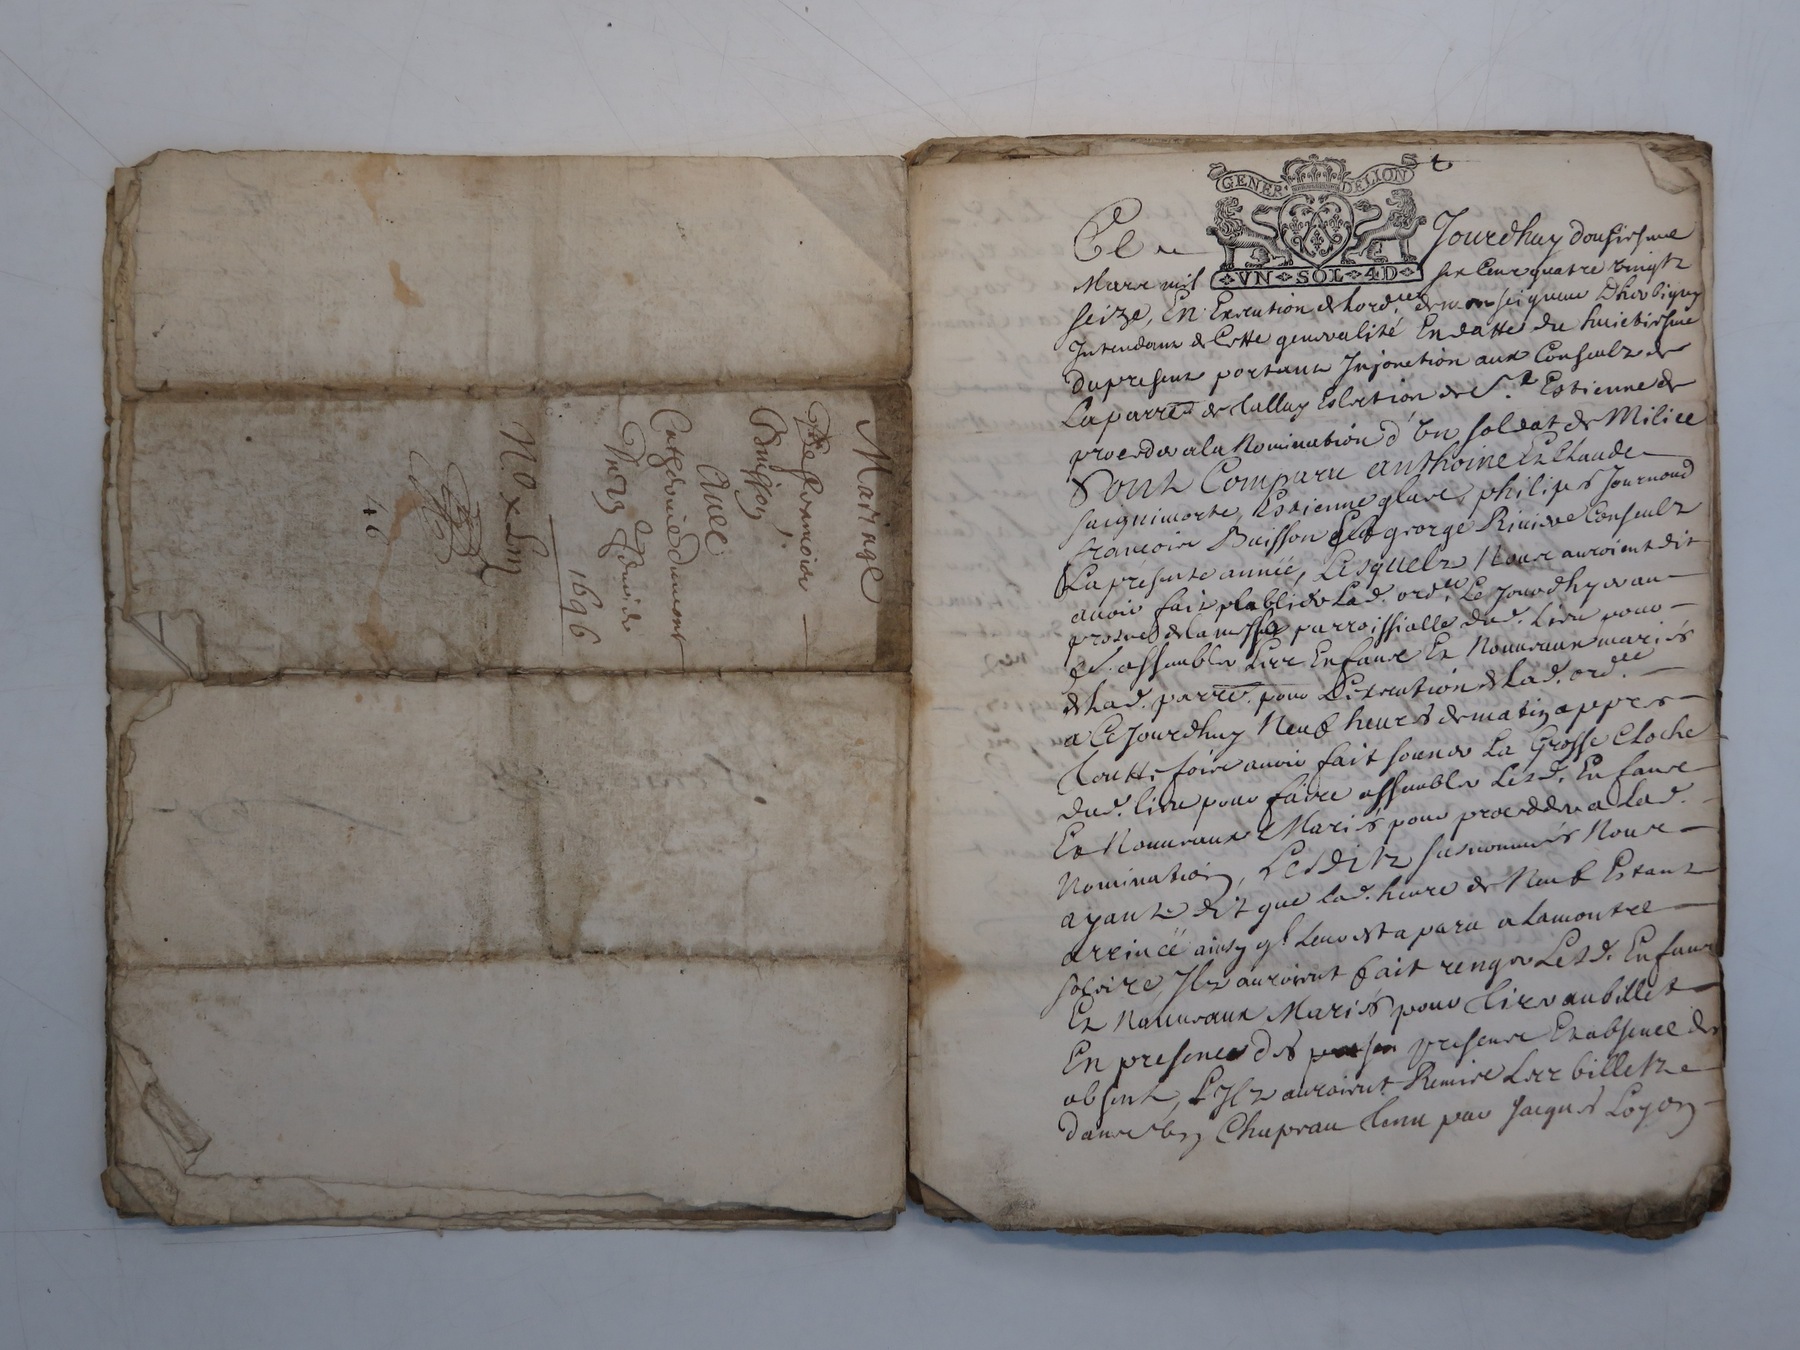 Mariage
De
Buisson
Avec
1696
46
GENER. DE LION
VN SOL 4D
Ce Jourdhuy dousiesme
Mars mil six Cens quatre vingtz
seize, En Execution de Lordce. de monseigneur Dherbigny
Intendant de Cette generalité En datte du huictiesme
Dupresent portant Injonction aux Consculz de
Laparre de tallay Eslection de St. Estienne de
proceder ala Nomination d'Un soldat de Milice
Sont Comparu anthoine Et Claude
Estienne philipes Journoud
francois Buisson Et george Riviere Consculz
Laprésente année, Lesquelz Nous auroient dit
avoir fait publier Lad. ordce. Le Jourdhyer au
prosne de la messe parroissialle dud. Lieu pour
assembler Les Enfans Et Nouveaux mariés
de Lad. parre. pour Lexecution de Lad. ordce
a Ce Jourdhuy Neuf heures de matin appres
touttefois avoir fait sonner La Grosse Cloche
dud. lieu pour faire assembler Lesd. Enfans
Et Nouveaux Mariés pour procedder a Lad.
Nomination, Lesditz susnommés Nous
ayant dit que Lad. heure de Neuf Estant
arrivéé ainsy ql. Leur est aparu a Lamontre
solaire, Ilz auroient fait renger Lesd. Enfans
Et Nouveaux Mariés pour tirer aubillet
En presence des presens Et absence des
absentz, Ilz auroient Remis Les billetz
dans Un Chapeau tenu par Jacques Loyon